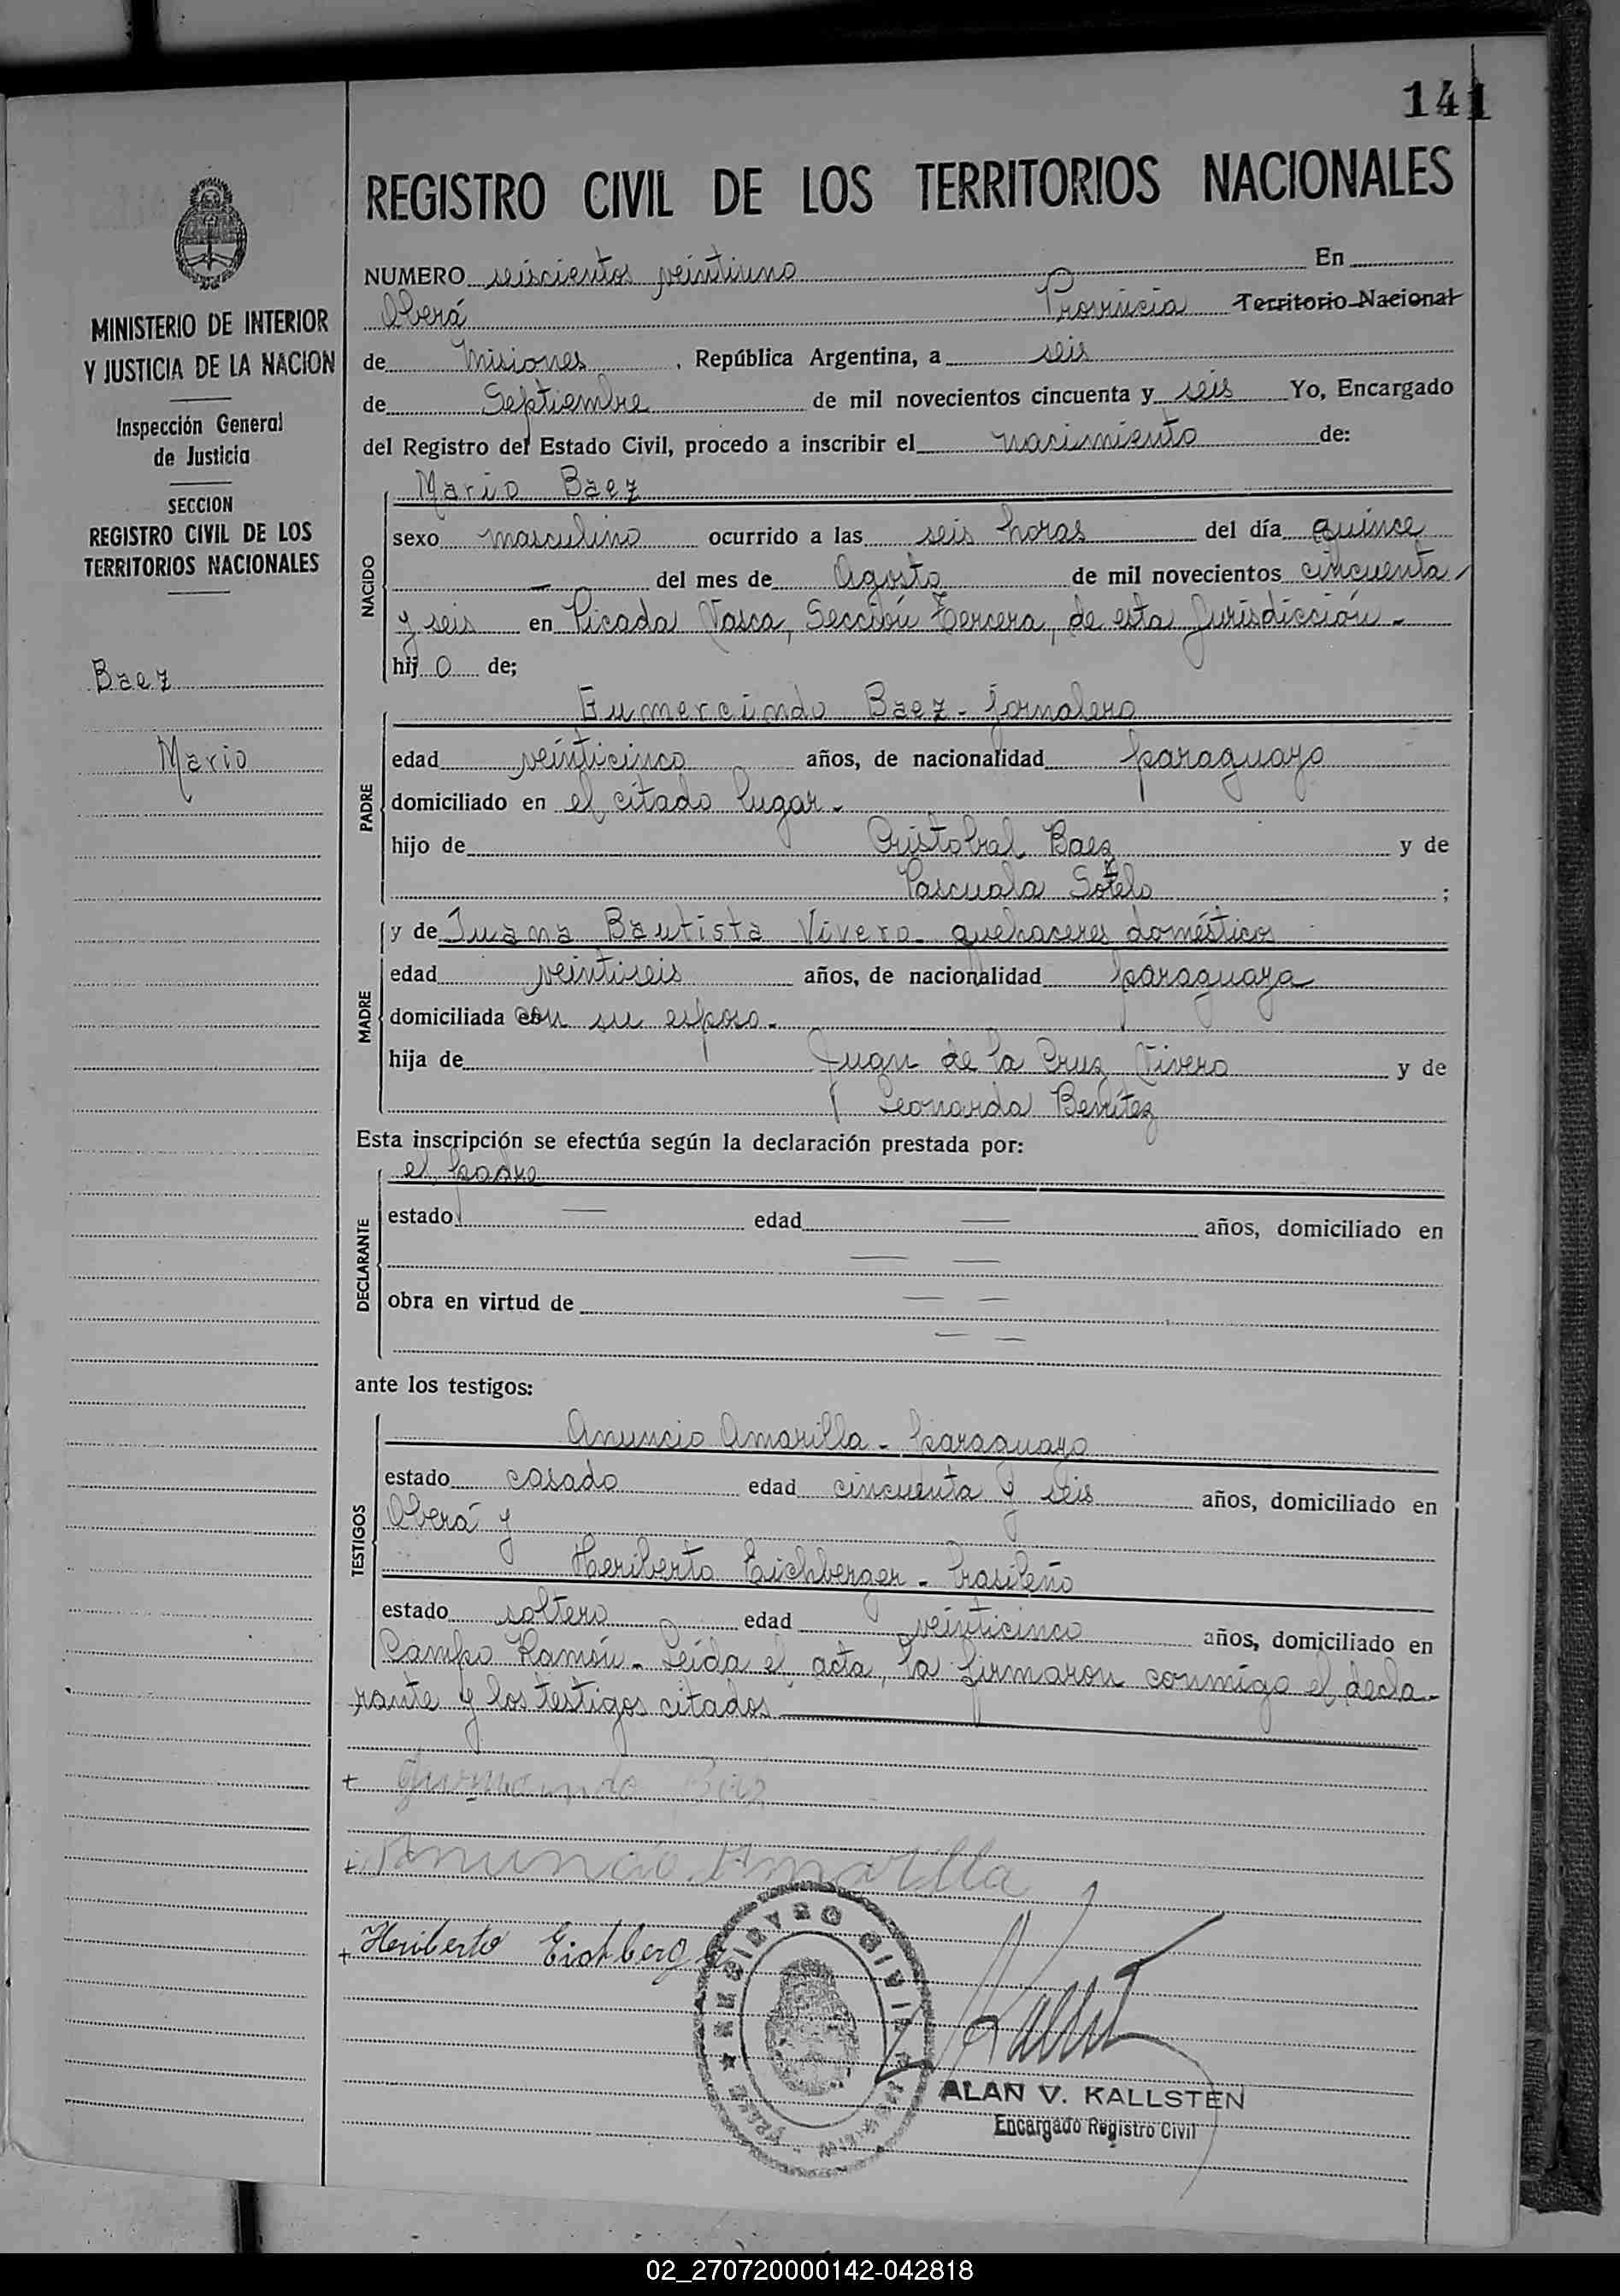 141
REGISTRO CIVIL DE LOS TERRITORIOS NACIONALES
MINISTERIO DE INTERIOR
Y JUSTICIA DE LA NACION
Inspección General
de Justicia
SECCION
REGISTRO CIVIL DE LOS
TERRITORIOS NACIONALES
Baez
Mario
NUMERO seiscientos veintiuno En
Oberá Provincia Territorio Nacional
de Misiones, República Argentina, a seis
de Septiembre de mil novecientos cincuenta y seis Yo, Encargado
del Registro del Estado Civil, procedo a inscribir el nacimiento de:
NACIDO
Mario Baez
sexo masculino ocurrido a las seis horas del día quince
— del mes de Agosto de mil novecientos cincuenta
y seis en Picada Vasca, Sección Tercera, de esta Jurisdicción.-
hijo de;
PADRE
Gumercindo Baez - jornalero
edad veinticinco años, de nacionalidad paraguayo
domiciliado en el citado lugar.-
hijo de Cristobal Baez y de
Pascuala Sotelo ;
MADRE
y de Juana Bautista Vivero - quehaceres domésticos
edad veintiseis años, de nacionalidad paraguaya
domiciliada con su esposo.-
hija de Juan de la Cruz Vivero y de
Leonarda Benítez
Esta inscripción se efectúa según la declaración prestada por:
DECLARANTE
el padre
estado — edad — años, domiciliado en
— —
obra en virtud de — —
— —
ante los testigos:
TESTIGOS
Anuncio Amarilla - paraguayo
estado casado edad cincuenta y seis años, domiciliado en
Oberá y
Heriberto Eichberger - brasileño
estado soltero edad veinticinco años, domiciliado en
Campo Ramón.- Leída el acta, la firmaron conmigo el decla-
rante y los testigos citados
+ Gumercindo Baez
+ Anuncio Amarilla
+ Heriberto Eichberger
REGISTRO CIVIL
ALAN V. KALLSTEN
Encargado Registro Civil
02_270720000142-042818